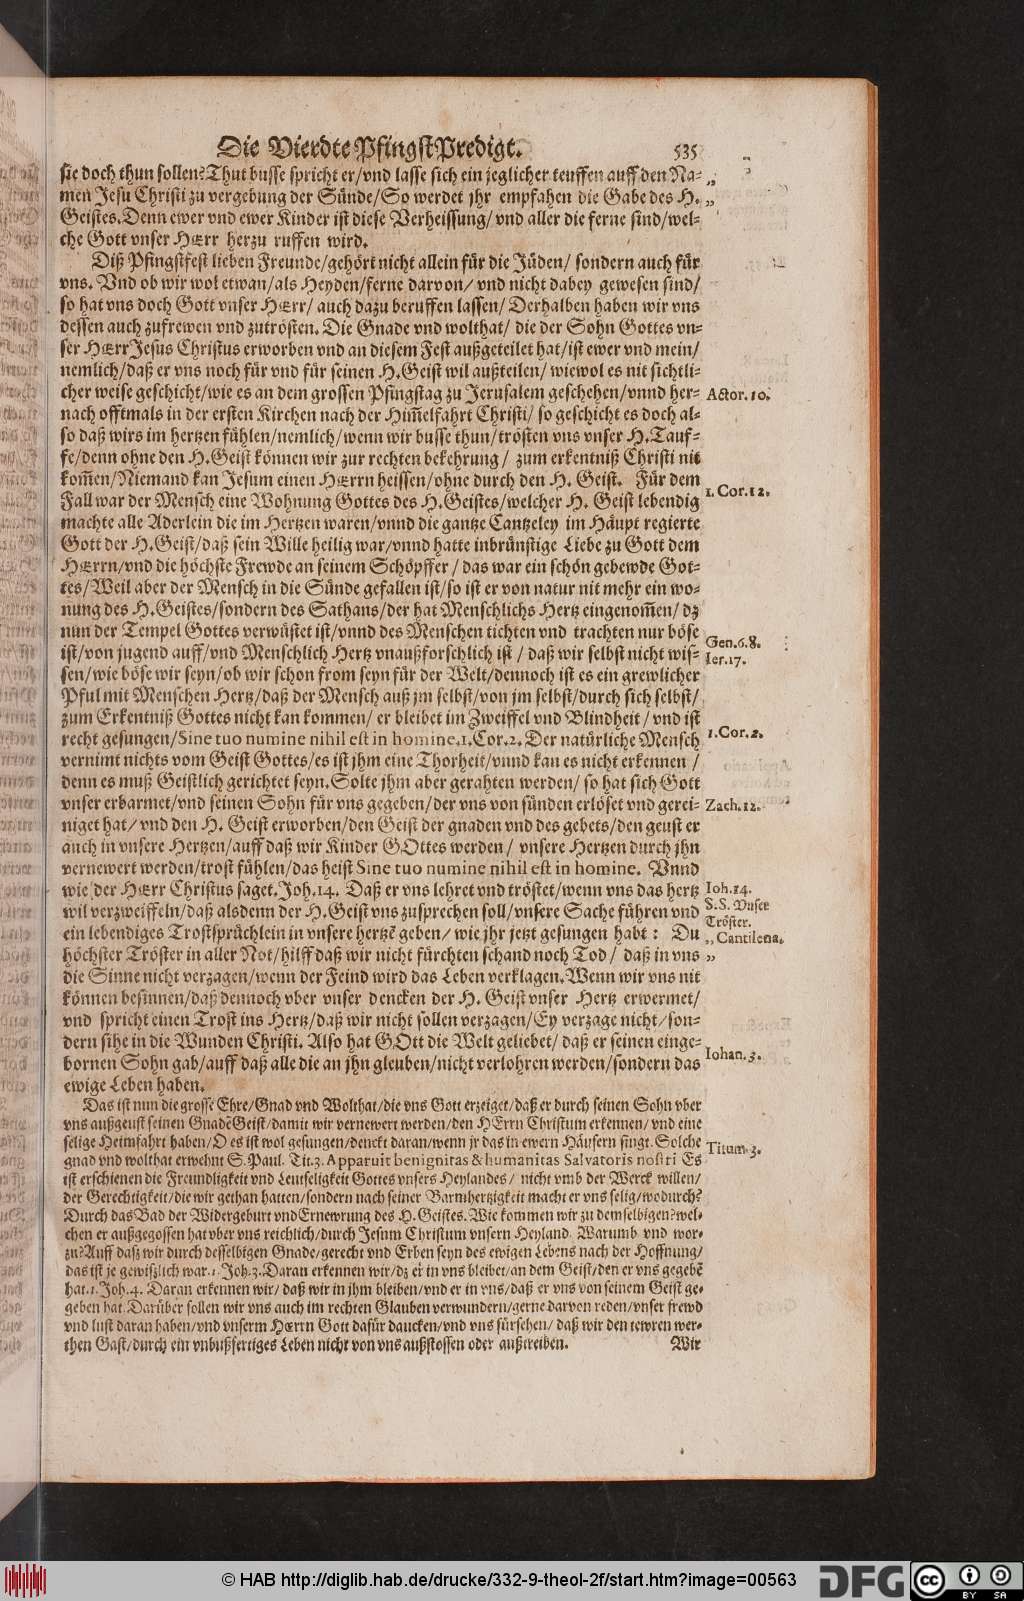 Die Vierdte PfingstPredigt. 535
sie doch thun sollen? Thut busse spricht er/ vnd lasse sich ein jeglicher teuffen auff den Na-
men Jesu Christi zu vergebung der Sünde/ So werdet jhr empfahen die Gabe des H.
Geistes. Denn ewer vnd ewer Kinder ist diese Verheissung/ vnd aller die ferne sind/ wel-
che Gott vnser HErr herzu ruffen wird.
Diß Pfingstfest lieben Freunde/ gehört nicht allein für die Jüden/ sondern auch für
vns. Vnd ob wir wol etwan/ als Heyden/ ferne darvon/ vnd nicht dabey gewesen sind/
so hat vns doch Gott vnser HErr/ auch dazu beruffen lassen/ Derhalben haben wir vns
dessen auch zufrewen vnd zutrösten. Die Gnade vnd wolthat/ die der Sohn Gottes vn-
ser HErr Jesus Christus erworben vnd an diesem Fest außgeteilet hat/ ist ewer vnd mein/
nemlich/ daß er vns noch für vnd für seinen H. Geist wil außteilen/ wiewol es nit sichtli-
cher weise geschicht/ wie es an dem grossen Pfingstag zu Jerusalem geschehen/ vnnd her-
Actor. 10.
nach offtmals in der ersten Kirchen nach der Him̃elfahrt Christi/ so geschicht es doch al-
so daß wirs im hertzen fühlen/ nemlich/ wenn wir busse thun/ trösten vns vnser H. Tauf-
fe/ denn ohne den H. Geist können wir zur rechten bekehrung/ zum erkentniß Christi nit
kom̃en/ Niemand kan Jesum einen HErrn heissen/ ohne durch den H. Geist. Für dem
1. Cor. 12.
Fall war der Mensch eine Wohnung Gottes des H. Geistes/ welcher H. Geist lebendig
machte alle Aderlein die im Hertzen waren/ vnnd die gantze Cantzeley im Häupt regierte
Gott der H. Geist/ daß sein Wille heilig war/ vnnd hatte inbrünstige Liebe zu Gott dem
HErrn/ vnd die höchste Frewde an seinem Schöpffer/ das war ein schön gebewde Got-
tes/ Weil aber der Mensch in die Sünde gefallen ist/ so ist er von natur nit mehr ein wo-
nung des H. Geistes/ sondern des Sathans/ der hat Menschlichs Hertz eingenom̃en/ dz
nun der Tempel Gottes verwüstet ist/ vnnd des Menschen tichten vnd trachten nur böse
Gen. 6. 8.
ist/ von jugend auff/ vnd Menschlich Hertz vnaußforschlich ist/ daß wir selbst nicht wis-
Ier. 17.
sen/ wie böse wir seyn/ ob wir schon from seyn für der Welt/ dennoch ist es ein grewlicher
Pful mit Menschen Hertz/ daß der Mensch auß jm selbst/ von jm selbst/ durch sich selbst/
zum Erkentniß Gottes nicht kan kommen/ er bleibet im Zweiffel vnd Blindheit/ vnd ist
recht gesungen/ Sine tuo numine nihil est in homine. 1. Cor. 2. Der natürliche Mensch
1. Cor. 2.
vernimt nichts vom Geist Gottes/ es ist jhm eine Thorheit/ vnnd kan es nicht erkennen/
denn es muß Geistlich gerichtet seyn. Solte jhm aber gerahten werden/ so hat sich Gott
vnser erbarmet/ vnd seinen Sohn für vns gegeben/ der vns von sünden erlöset vnd gerei-
Zach. 12.
niget hat/ vnd den H. Geist erworben/ den Geist der gnaden vnd des gebets/ den geust er
auch in vnsere Hertzen/ auff daß wir Kinder GOttes werden/ vnsere Hertzen durch jhn
vernewert werden/ trost fühlen/ das heist Sine tuo numine nihil est in homine. Vnnd
wie der HErr Christus saget. Joh. 14. Daß er vns lehret vnd tröstet/ wenn vns das hertz
Ioh. 14.
wil verzweiffeln/ daß alsdenn der H. Geist vns zusprechen soll/ vnsere Sache führen vnd
S.S. Vnser
Tröster.
ein lebendiges Trostsprüchlein in vnsere hertzẽ geben/ wie jhr jetzt gesungen habt: Du
Cantilena.
höchster Tröster in aller Not/ hilff daß wir nicht fürchten schand noch Tod/ daß in vns
die Sinne nicht verzagen/ wenn der Feind wird das Leben verklagen. Wenn wir vns nit
können besinnen/ daß dennoch vber vnser dencken der H. Geist vnser Hertz erwermet/
vnd spricht einen Trost ins Hertz/ daß wir nicht sollen verzagen/ Ey verzage nicht/ son-
dern sihe in die Wunden Christi. Also hat GOtt die Welt geliebet/ daß er seinen einge-
Iohan. 3.
bornen Sohn gab/ auff daß alle die an jhn gleuben/ nicht verlohren werden/ sondern das
ewige Leben haben.
Das ist nun die grosse Ehre/ Gnad vnd Wolthat/ die vns Gott erzeiget/ daß er durch seinen Sohn vber
vns außgeust seinen GnadẽGeist/ damit wir vernewert werden/ den HErrn Christum erkennen/ vnd eine
selige Heimfahrt haben/ O es ist wol gesungen/ denckt daran/ wenn jr das in ewern Häusern singt. Solche
Titum 3.
gnad vnd wolthat erwehnt S. Paul. Tit. 3. Apparuit benignitas & humanitas Salvatoris nostri Es
ist erschienen die Freundligkeit vnd Leutseligkeit Gottes vnsers Heylandes/ nicht vmb der Werck willen/
der Gerechtigkeit/ die wir gethan hatten/ sondern nach seiner Barmhertzigkeit macht er vns selig/ wodurch?
Durch das Bad der Widergeburt vnd Ernewrung des H. Geistes. Wie kommen wir zu demselbigen? wel-
chen er außgegossen hat vber vns reichlich/ durch Jesum Christum vnsern Heyland. Warumb vnd wor-
zu? Auff daß wir durch desselbigen Gnade/ gerecht vnd Erben seyn des ewigen Lebens nach der Hoffnung/
das ist je gewißlich war. 1. Joh. 3. Daran erkennen wir/ dz er in vns bleibet/ an dem Geist/ den er vns gegebẽ
hat. 1. Joh. 4. Daran erkennen wir/ daß wir in jhm bleiben/ vnd er in vns/ daß er vns von seinem Geist ge-
geben hat. Darüber sollen wir vns auch im rechten Glauben verwundern/ gerne darvon reden/ vnser frewd
vnd lust daran haben/ vnd vnserm HErrn Gott dafür dancken/ vnd vns fürsehen/ daß wir den tewren wer-
then Gast/ durch ein vnbußfertiges Leben nicht von vns außstossen oder außtreiben. Wir
© HAB http://diglib.hab.de/drucke/332-9-theol-2f/start.htm?image=00563
DFG
CC BY SA